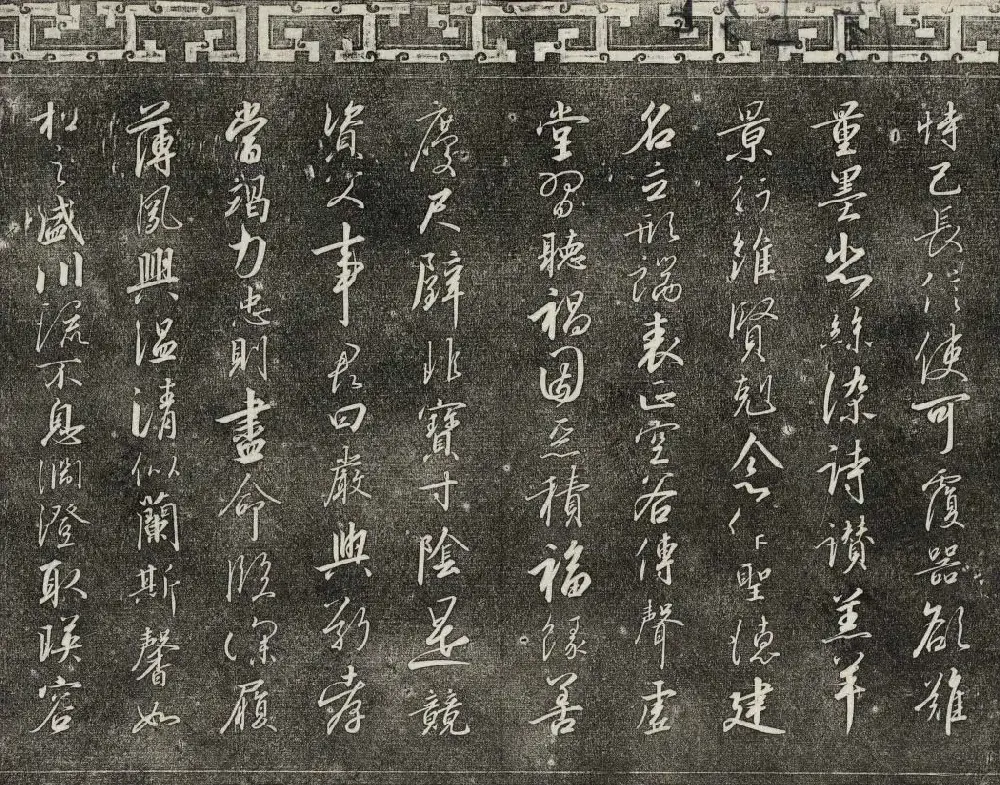 恃己長信使可覆器欲難
量墨悲絲染詩讃羔羊
景行維賢剋念作聖德建
名立形端表正空谷傳聲虛
堂習聽禍因惡積福緣善
慶尺璧非寶寸陰是競
資父事君曰嚴與敬孝
當竭力忠則盡命臨深履
薄夙興溫清似蘭斯馨如
松之盛川流不息淵澄取暎容